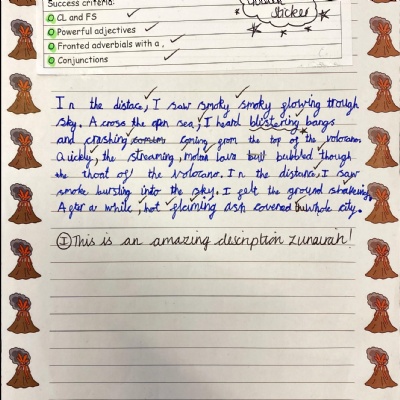 Success criteria:
CL and FS
Powerful adjectives
Fronted adverbials with a ,
Conjunctions
sticker
In the distace, I saw smoky smoky glowing trough
sky. Across the open sea, I heard blistering bangs
and crashing coming from the top of the volcano.
Quickly, the streaming, molten lava bubbled though
the thoat of the volcano. In the distance, I saw
smoke bursting into the sky. I felt the ground shaking.
After a while, hot gleming ash covered whole city.
I This is an amazing description Zunairah!